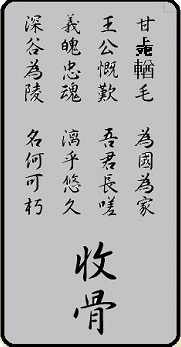 甘輶毛　為國為家
王公慨歎　吾君長嗟
義魄忠魂　漓乎悠久
深谷為陵　名何可朽
收骨